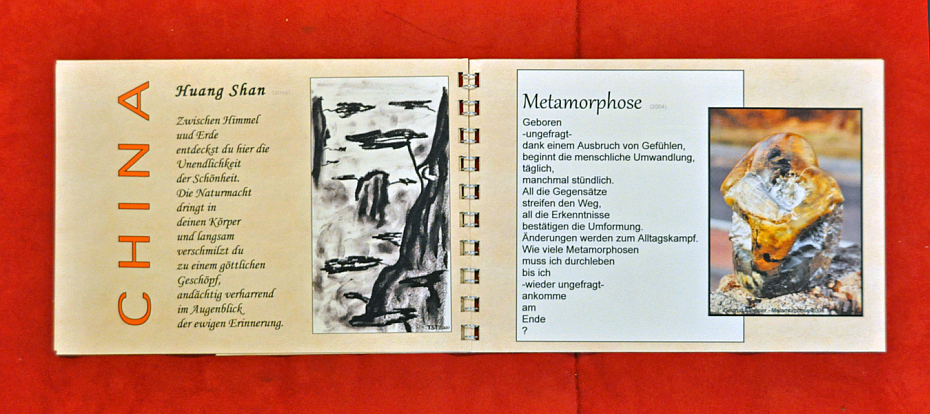 CHINA
Huang Shan
Zwischen Himmel
uud Erde
entdeckst du hier die
Unendlichkeit
der Schönheit.
Die Naturmacht
dringt in
deinen Körper
und langsam
verschmilzt du
zu einem göttlichen
Geschöpf,
andächtig verharrend
im Augenblick
der ewigen Erinnerung.
TST
Metamorphose (2004)
Geboren
-ungefragt-
dank einem Ausbruch von Gefühlen,
beginnt die menschliche Umwandlung,
täglich,
manchmal stündlich.
All die Gegensätze
streifen den Weg,
all die Erkenntnisse
bestätigen die Umformung.
Änderungen werden zum Alltagskampf.
Wie viele Metamorphosen
muss ich durchleben
bis ich
-wieder ungefragt-
ankomme
am
Ende
?